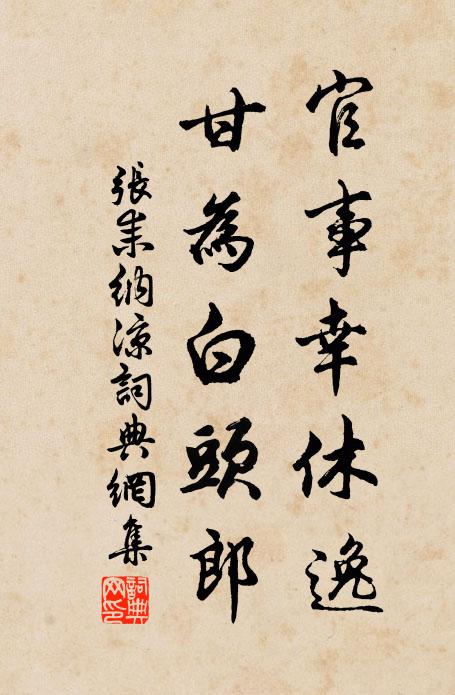 官事幸休逸
甘為白頭郎
張耒納涼詞典網集
詞典網印